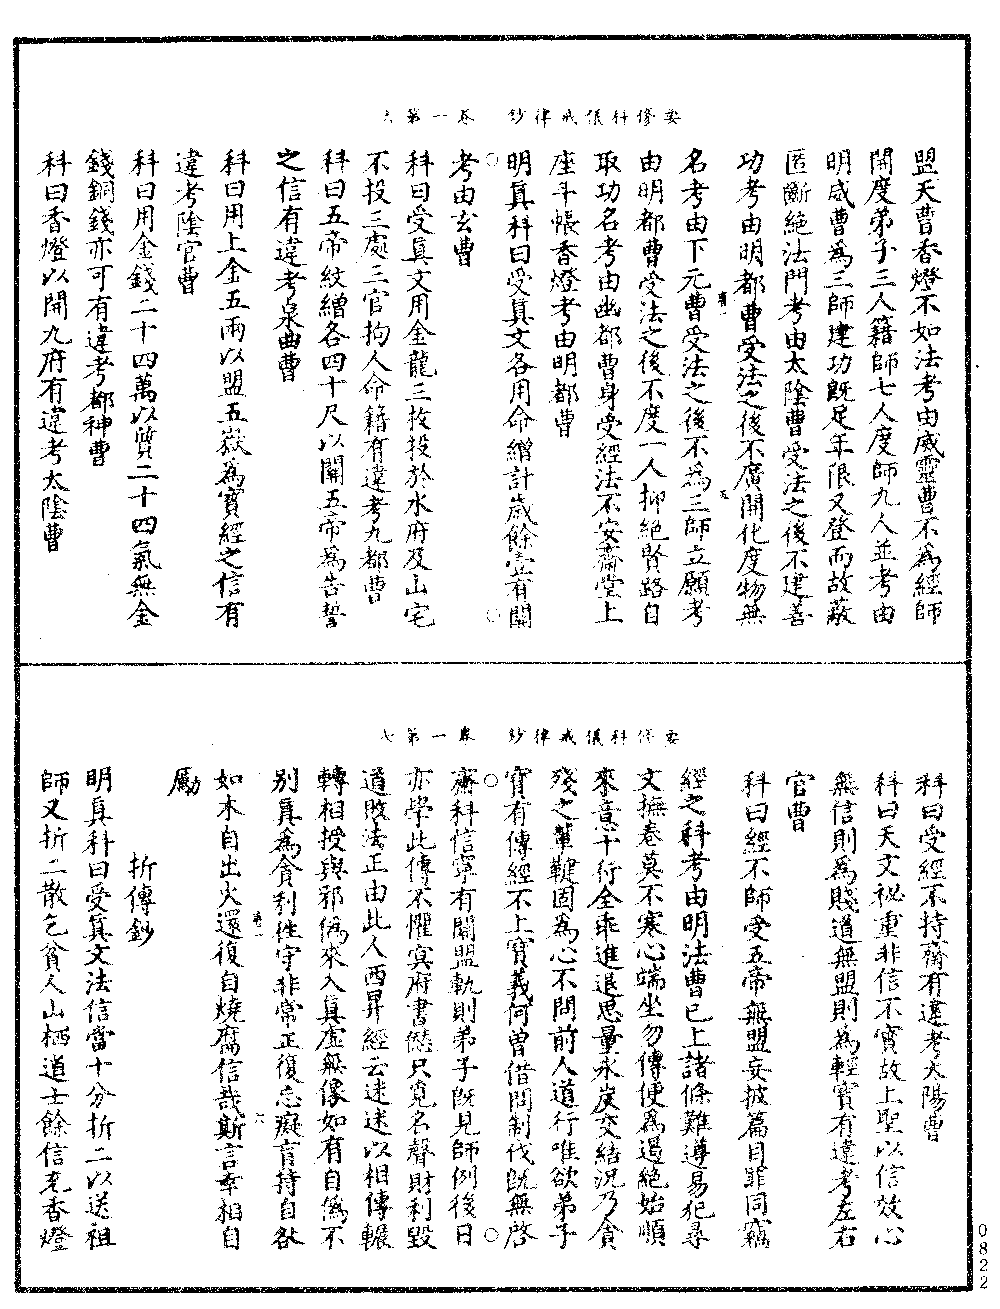 要修科儀戒律鈔 卷一第六
盟天曹香燈不如法考由威靈曹不為經師
開度弟子三人籍師七人度師九人並考由
明威曹為三師建功既足年限又登而故蔽
匿斷絕法門考由太陰曹受法之後不建善
功考由明都曹受法之後不廣開化度物無
名考由下元曹受法之後不為三師立願考
由明都曹受法之後不度一人抑絕賢路自
取功名考由幽都曹身受經法不安齋堂上
座斗帳香燈考由明都曹
明真科曰受真文各用命繒計歲餘壹有闕
考由玄曹
科曰受真文用金龍三枚投於水府及山宅
不投三處三官拘人命籍有違考九都曹
科曰五帝紋繒各四十尺以關五帝為告誓
之信有違考泉曲曹
科曰用上金五兩以盟五嶽為寶經之信有
違考陰官曹
科曰用金錢二十四萬以質二十四氣無金
錢銅錢亦可有違考都神曹
科曰香燈以開九府有違考太陰曹
要修科儀戒律鈔 卷一第七
科曰受經不持齋有違考太陽曹
科曰天文祕重非信不寶故上聖以信效心
無信則為賤道無盟則為輕寶有違考左右
官曹
科曰經不師受五帝無盟妄披篇目罪同竊
經之科考由明法曹已上諸條難遵易犯尋
文撫卷莫不寒心端坐勿傳便為遏絕始順
來意十行全乖進退思量氷炭交結況乃貪
殘之輩鞬固為心不問前人道行唯欲弟子
寶有傳經不上寶義何曾借問制伐既無啓
齋科信寧有關盟軌則弟子既見師例後日
亦學此傳不懼冥府書愆只覓名聲財利毀
道敗法正由此人西昇經云迷迷以相傳輾
轉相授與邪偽來入真虛無像如有自偽不
別真為貪利往守非常正復忘癡盲持自欲
如木自出火還復自燒腐信哉斯言幸相自
勵
折傳鈔
明真科曰受真文法信當十分折二以送祖
師又折二散乞貧人山栖道士餘信充香燈
0822